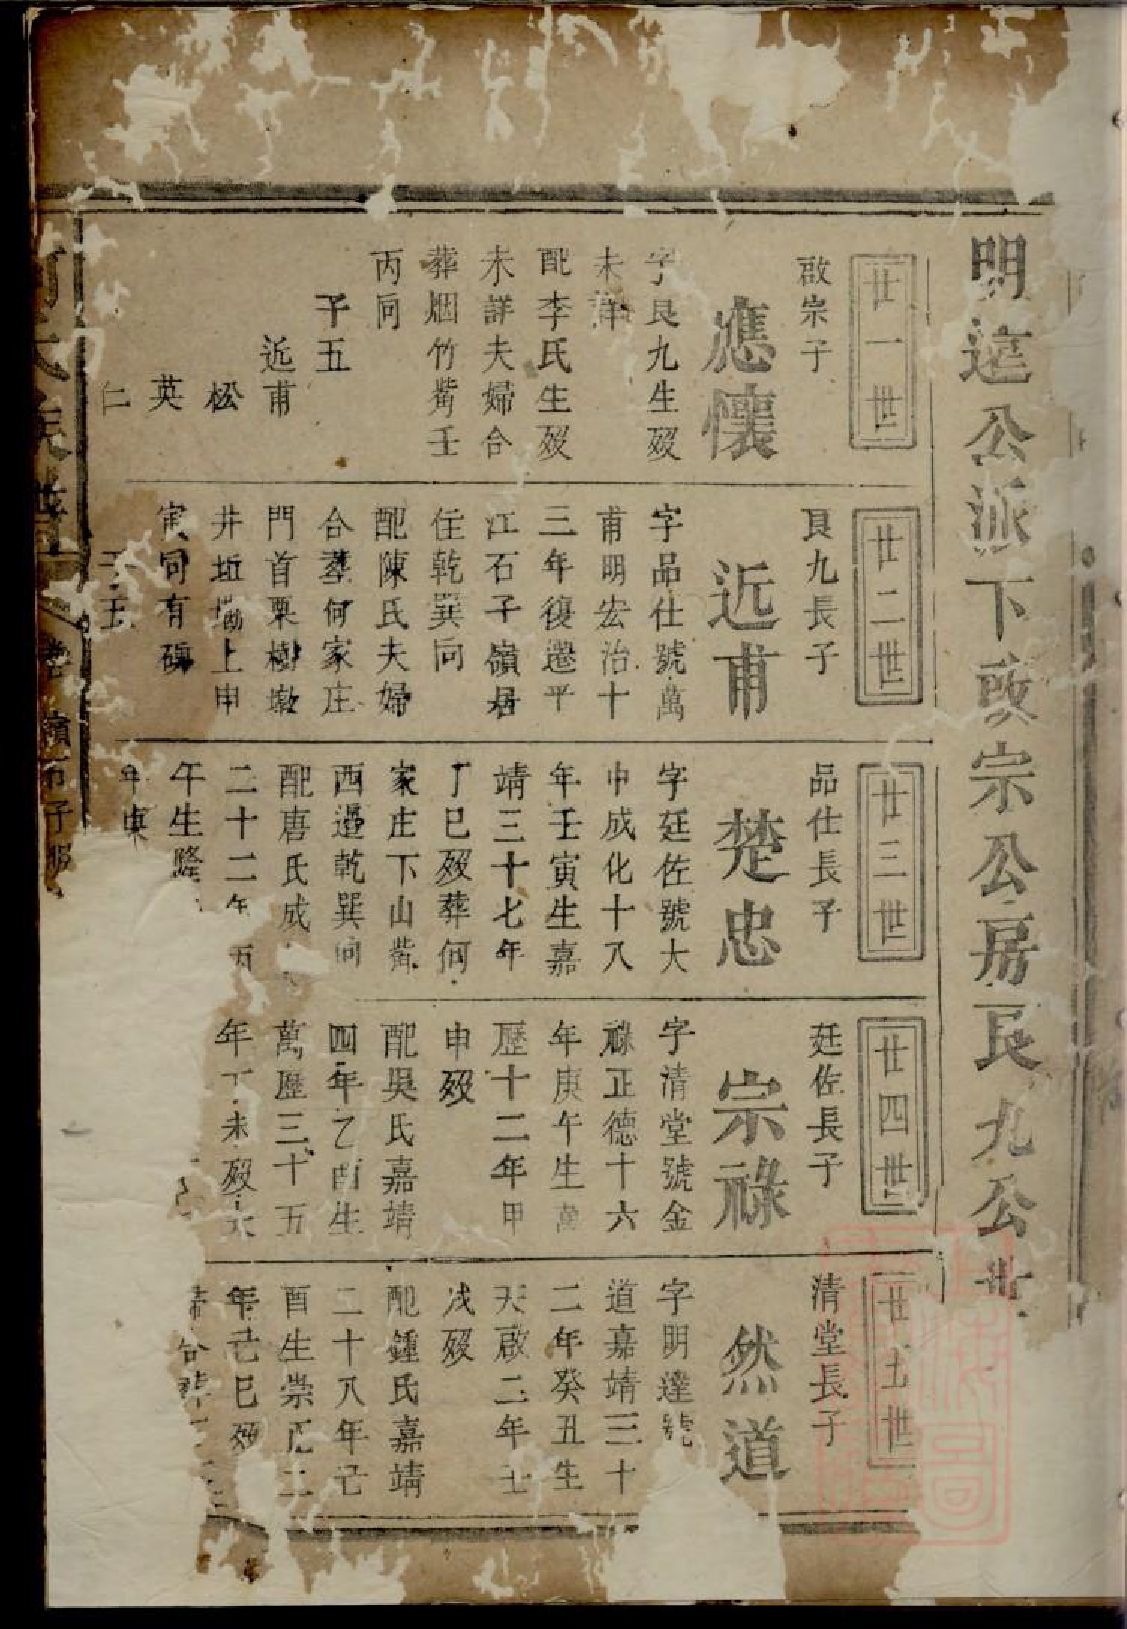 明達公派下啟宗公房艮九公世
廿一世
啟崇子
應懷
字艮九生歿
未詳
配李氏生歿
未詳夫婦合
葬烟竹觜壬
丙向
子五
近甫
松
英
仁
廿二世
艮九長子
近甫
字品仕號萬
甫明宏治十
三年復遷平
江石子嶺居
住乾巽向
配陳氏夫婦
合葬何家庄
門首栗樹墩
井坵墈上申
寅向有碑
子五
廿三世
品仕長子
楚忠
字廷佐號大
中成化十八
年壬寅生嘉
靖三十七年
丁巳歿葬何
家庄下山觜
西邊乾巽向
配唐氏成
二十二年丙
午生隆
年庚
廿四世
廷佐長子
宗祿
字清堂號金
祿正德十六
年庚午生萬
歷十二年甲
申歿
配吳氏嘉靖
四年乙酉生
萬歷三十五
年丁未歿
廿五世
清堂長子
然道
字明達號
道嘉靖三十
二年癸丑生
天啟二年壬
戌歿
配鍾氏嘉靖
二十八年己
酉生崇正二
年己巳歿
何氏族譜
卷
嶺
石子